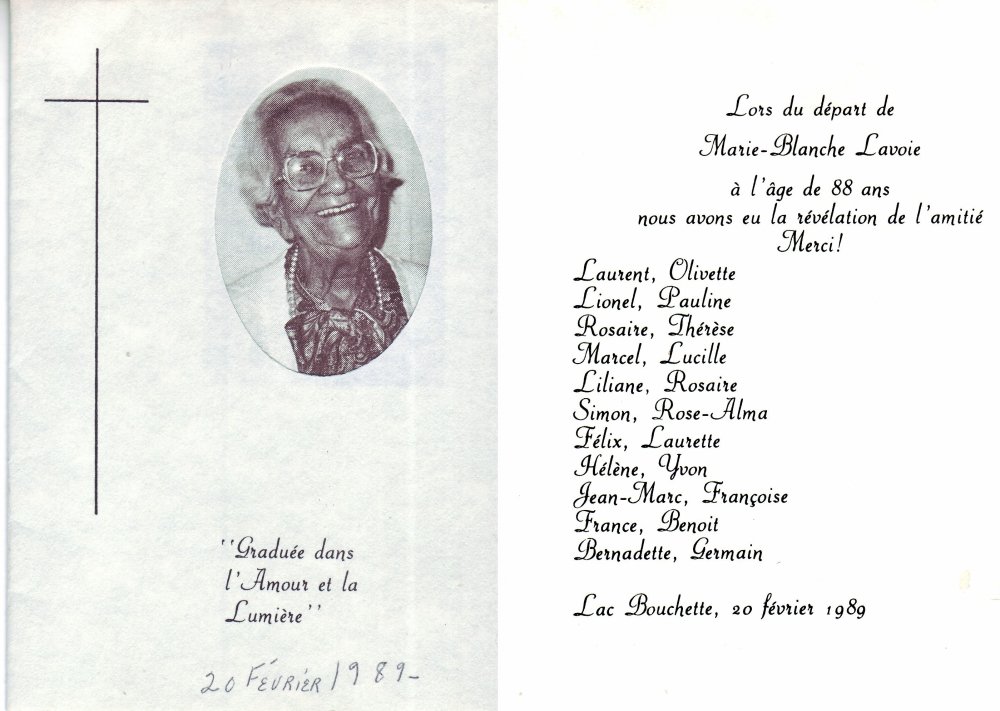 ''Graduée dans
l'Amour et la
Lumière''
20 FÉVRIER 1989-
Lors du départ de
Marie-Blanche Lavoie
à l'âge de 88 ans
nous avons eu la révélation de l'amitié
Merci!
Laurent, Olivette
Lionel, Pauline
Rosaire, Thérèse
Marcel, Lucille
Liliane, Rosaire
Simon, Rose-Alma
Félix, Laurette
Hélène, Yvon
Jean-Marc, Françoise
France, Benoit
Bernadette, Germain
Lac Bouchette, 20 février 1989